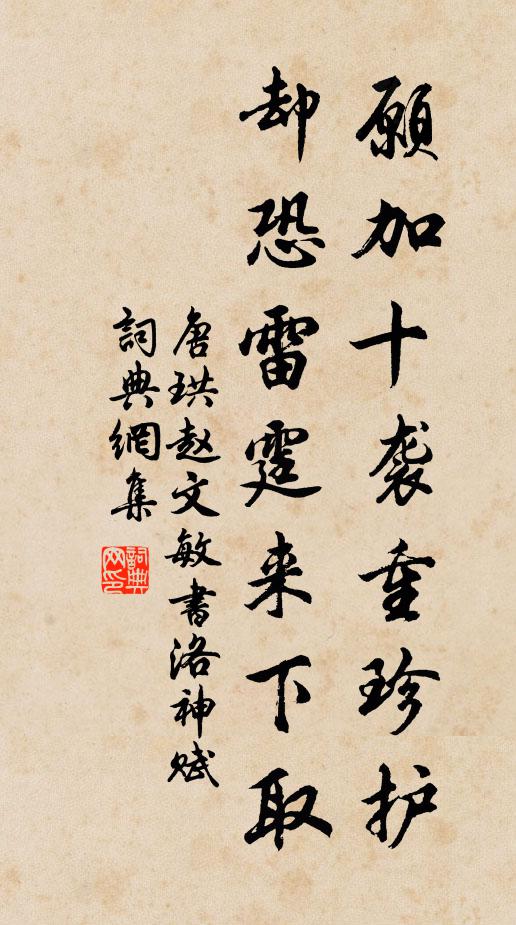 願加十袭重珍护
却恐雷霆来下取
唐珙赵文敏書洛神赋
詞典網集
詞典網印